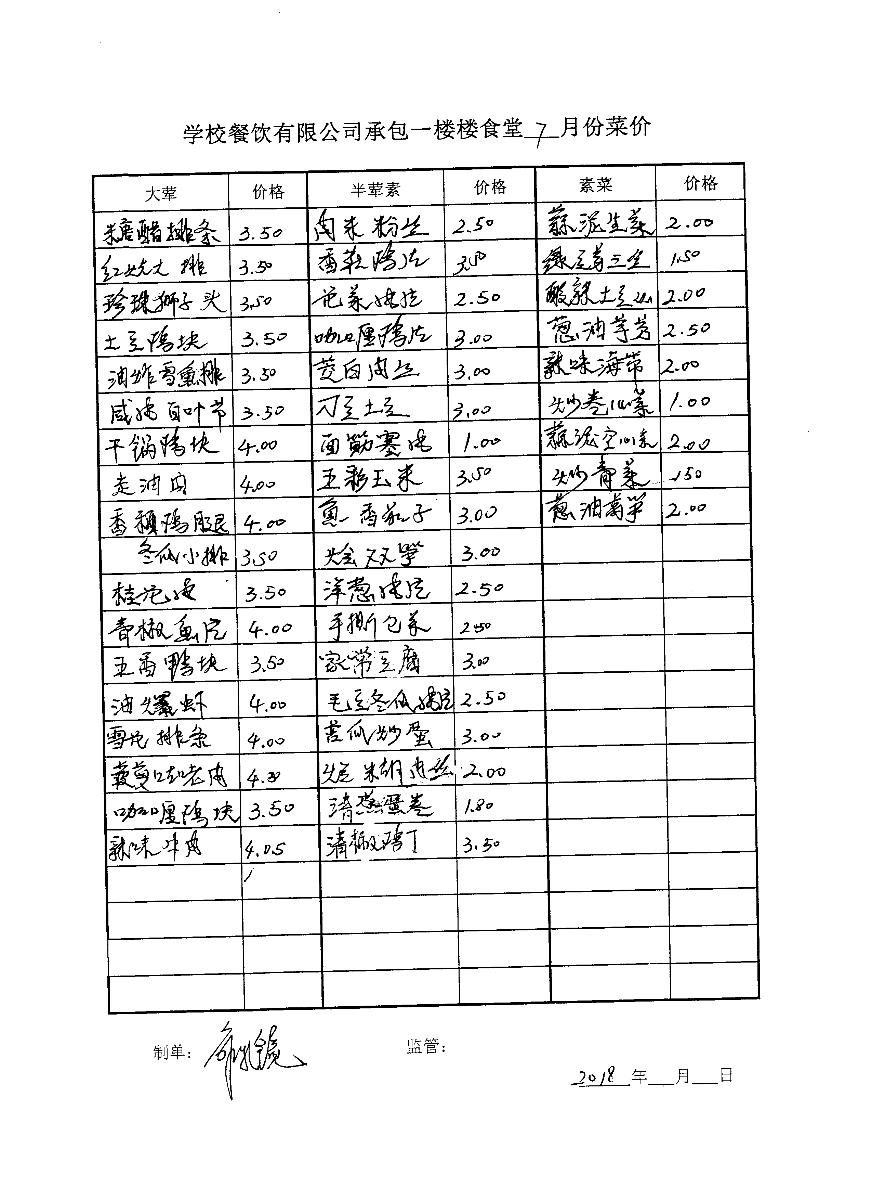 学校餐饮有限公司承包一楼楼食堂 7 月份菜价
大荤 价格 半荤素 价格 素菜 价格
糖醋排条 3.50 肉末粉丝 2.50 蒜泥生菜 2.00
红烧大排 3.50 香菇鸡片 3.50 绿豆芽三丝 1.50
珍珠狮子头 3.50 花菜肉片 2.50 酸辣土豆丝 2.00
土豆鸡块 3.50 咖喱鸡片 3.00 葱油芋艿 2.50
油炸雪鱼排 3.50 茭白肉丝 3.00 辣味海带 2.00
咸肉百叶节 3.50 刀豆土豆 3.00 炒卷心菜 1.00
干锅鸡块 4.00 面筋塞肉 1.00 蒜泥空心菜 2.00
走油肉 4.00 五彩玉米 3.50 炒青菜 1.50
香辣鸡腿 4.00 鱼香茄子 3.00 葱油莴笋 2.00
冬瓜小排 3.50 烩双笋 3.00
3.50 洋葱肉片 2.50
青椒鱼片 4.00 手撕包菜 2.50
五香鸭块 3.50 家常豆腐 3.00
油爆虾 4.00 毛豆冬瓜肉片 2.50
雪花排条 4.00 苦瓜炒蛋 3.00
菠萝咕老肉 4.30 肉丝 2.00
咖喱鸡块 3.50 清蒸蛋卷 1.80
辣味牛肉 4.05 清椒鸡丁 3.50
制单： 监管：
2018 年 月 日